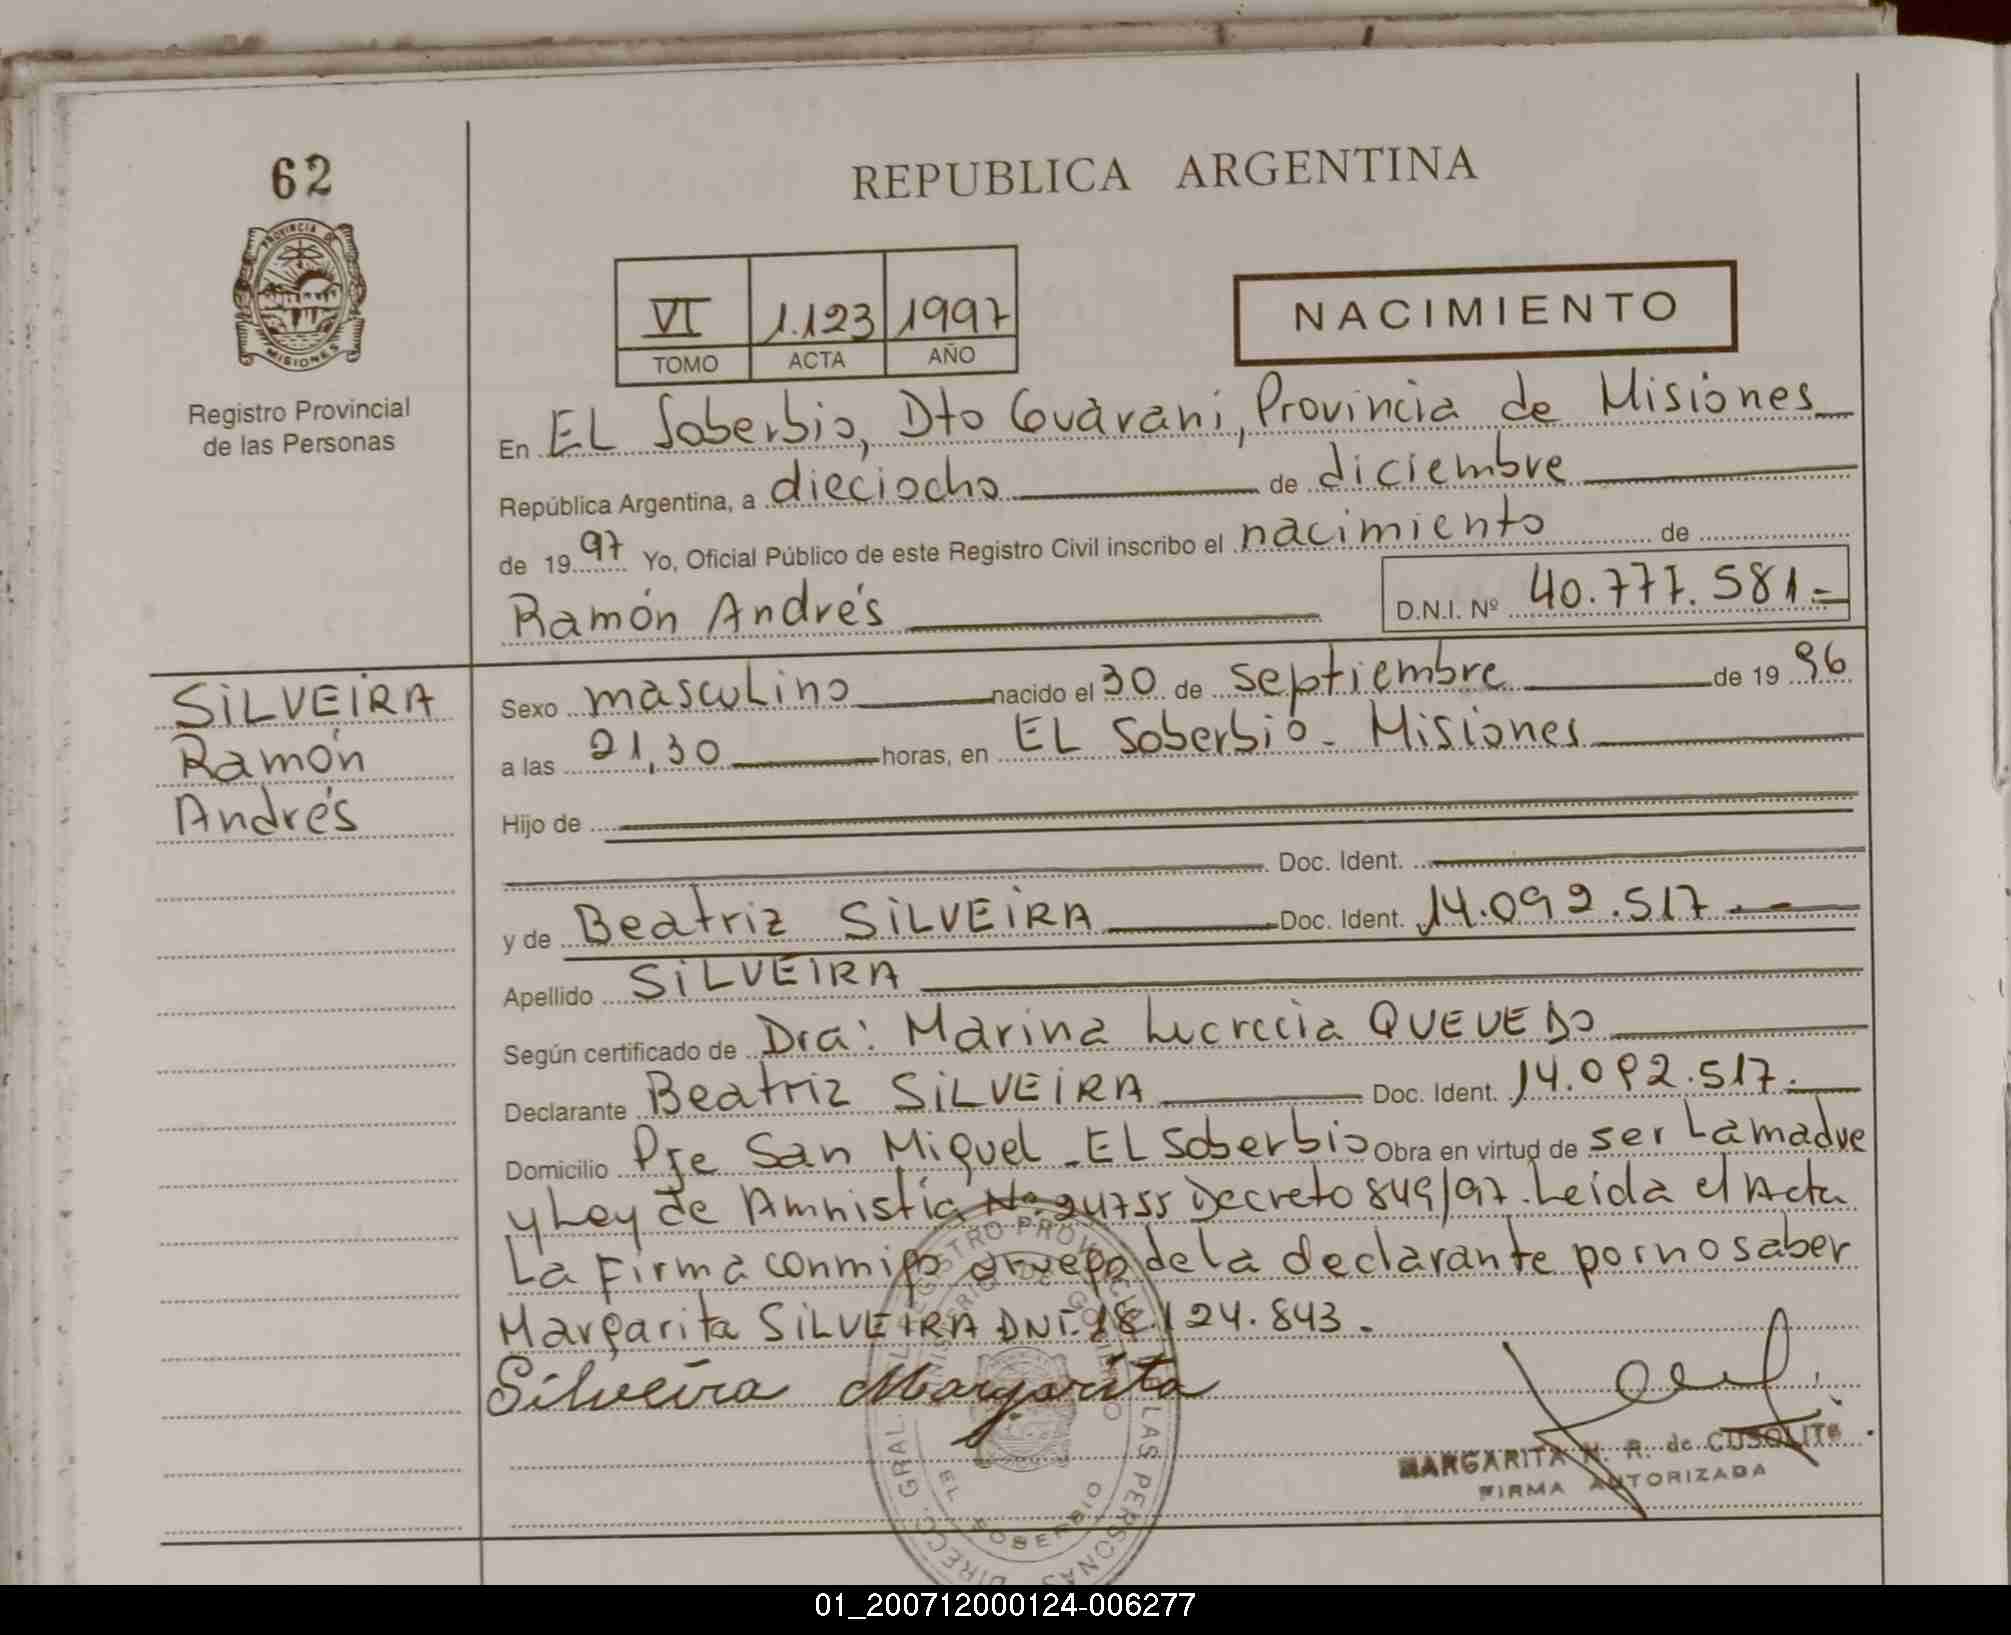 62
PROVINCIA DE
MISIONES
Registro Provincial
de las Personas
REPUBLICA ARGENTINA
VI 1.123 1997
TOMO ACTA AÑO
NACIMIENTO
En EL Soberbio, Dto Guaraní, Provincia de Misiones
República Argentina, a dieciocho de diciembre
de 19 97 Yo, Oficial Público de este Registro Civil inscribo el nacimiento de
Ramón Andrés D.N.I. Nº 40.777.581.-
SILVEIRA
Ramón
Andrés
Sexo masculino nacido el 30 de septiembre de 19 96
a las 21,30 horas, en EL Soberbio - Misiones
Hijo de
Doc. Ident.
y de Beatriz SILVEIRA Doc. Ident. 14.092.517.-
Apellido SILVEIRA
Según certificado de Dra: Marina Lucrecia QUEVEDO
Declarante Beatriz SILVEIRA Doc. Ident. 14.092.517.
Domicilio Pje San Miguel - EL Soberbio Obra en virtud de ser La madre
y Ley de Amnistía Nº 24755 Decreto 849/97. Leída el Acta
La Firma conmigo a ruego de la declarante por no saber
Margarita SILVEIRA DNI. 18.124.843.-
Silveira Margarita
MARGARITA N. R. de CUSOLITO
FIRMA AUTORIZADA
DIRECC. GRAL. DEL REGISTRO PROVINCIAL DE LAS PERSONAS
MINISTERIO DE GOBIERNO
EL SOBERBIO
01_200712000124-006277